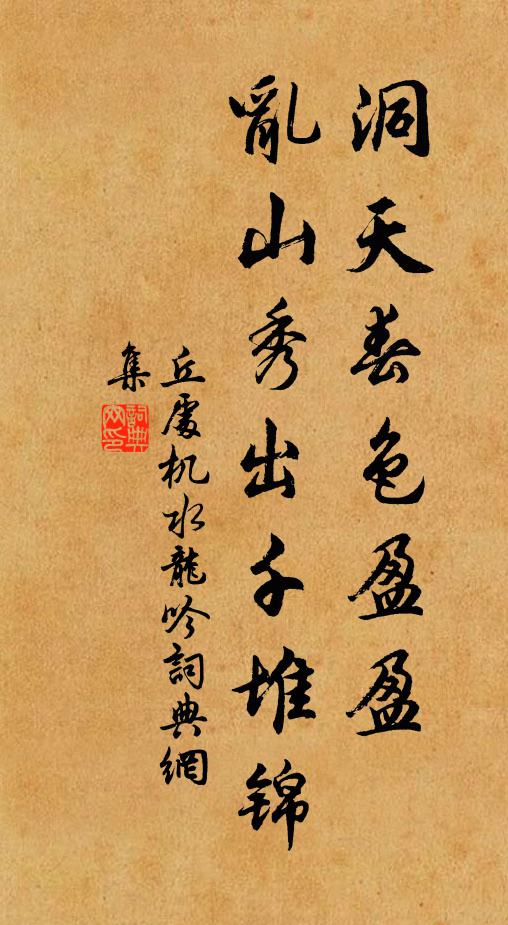 洞天春色盈盈
亂山秀出千堆锦
丘處机水龍吟詞典網
集
詞典網印